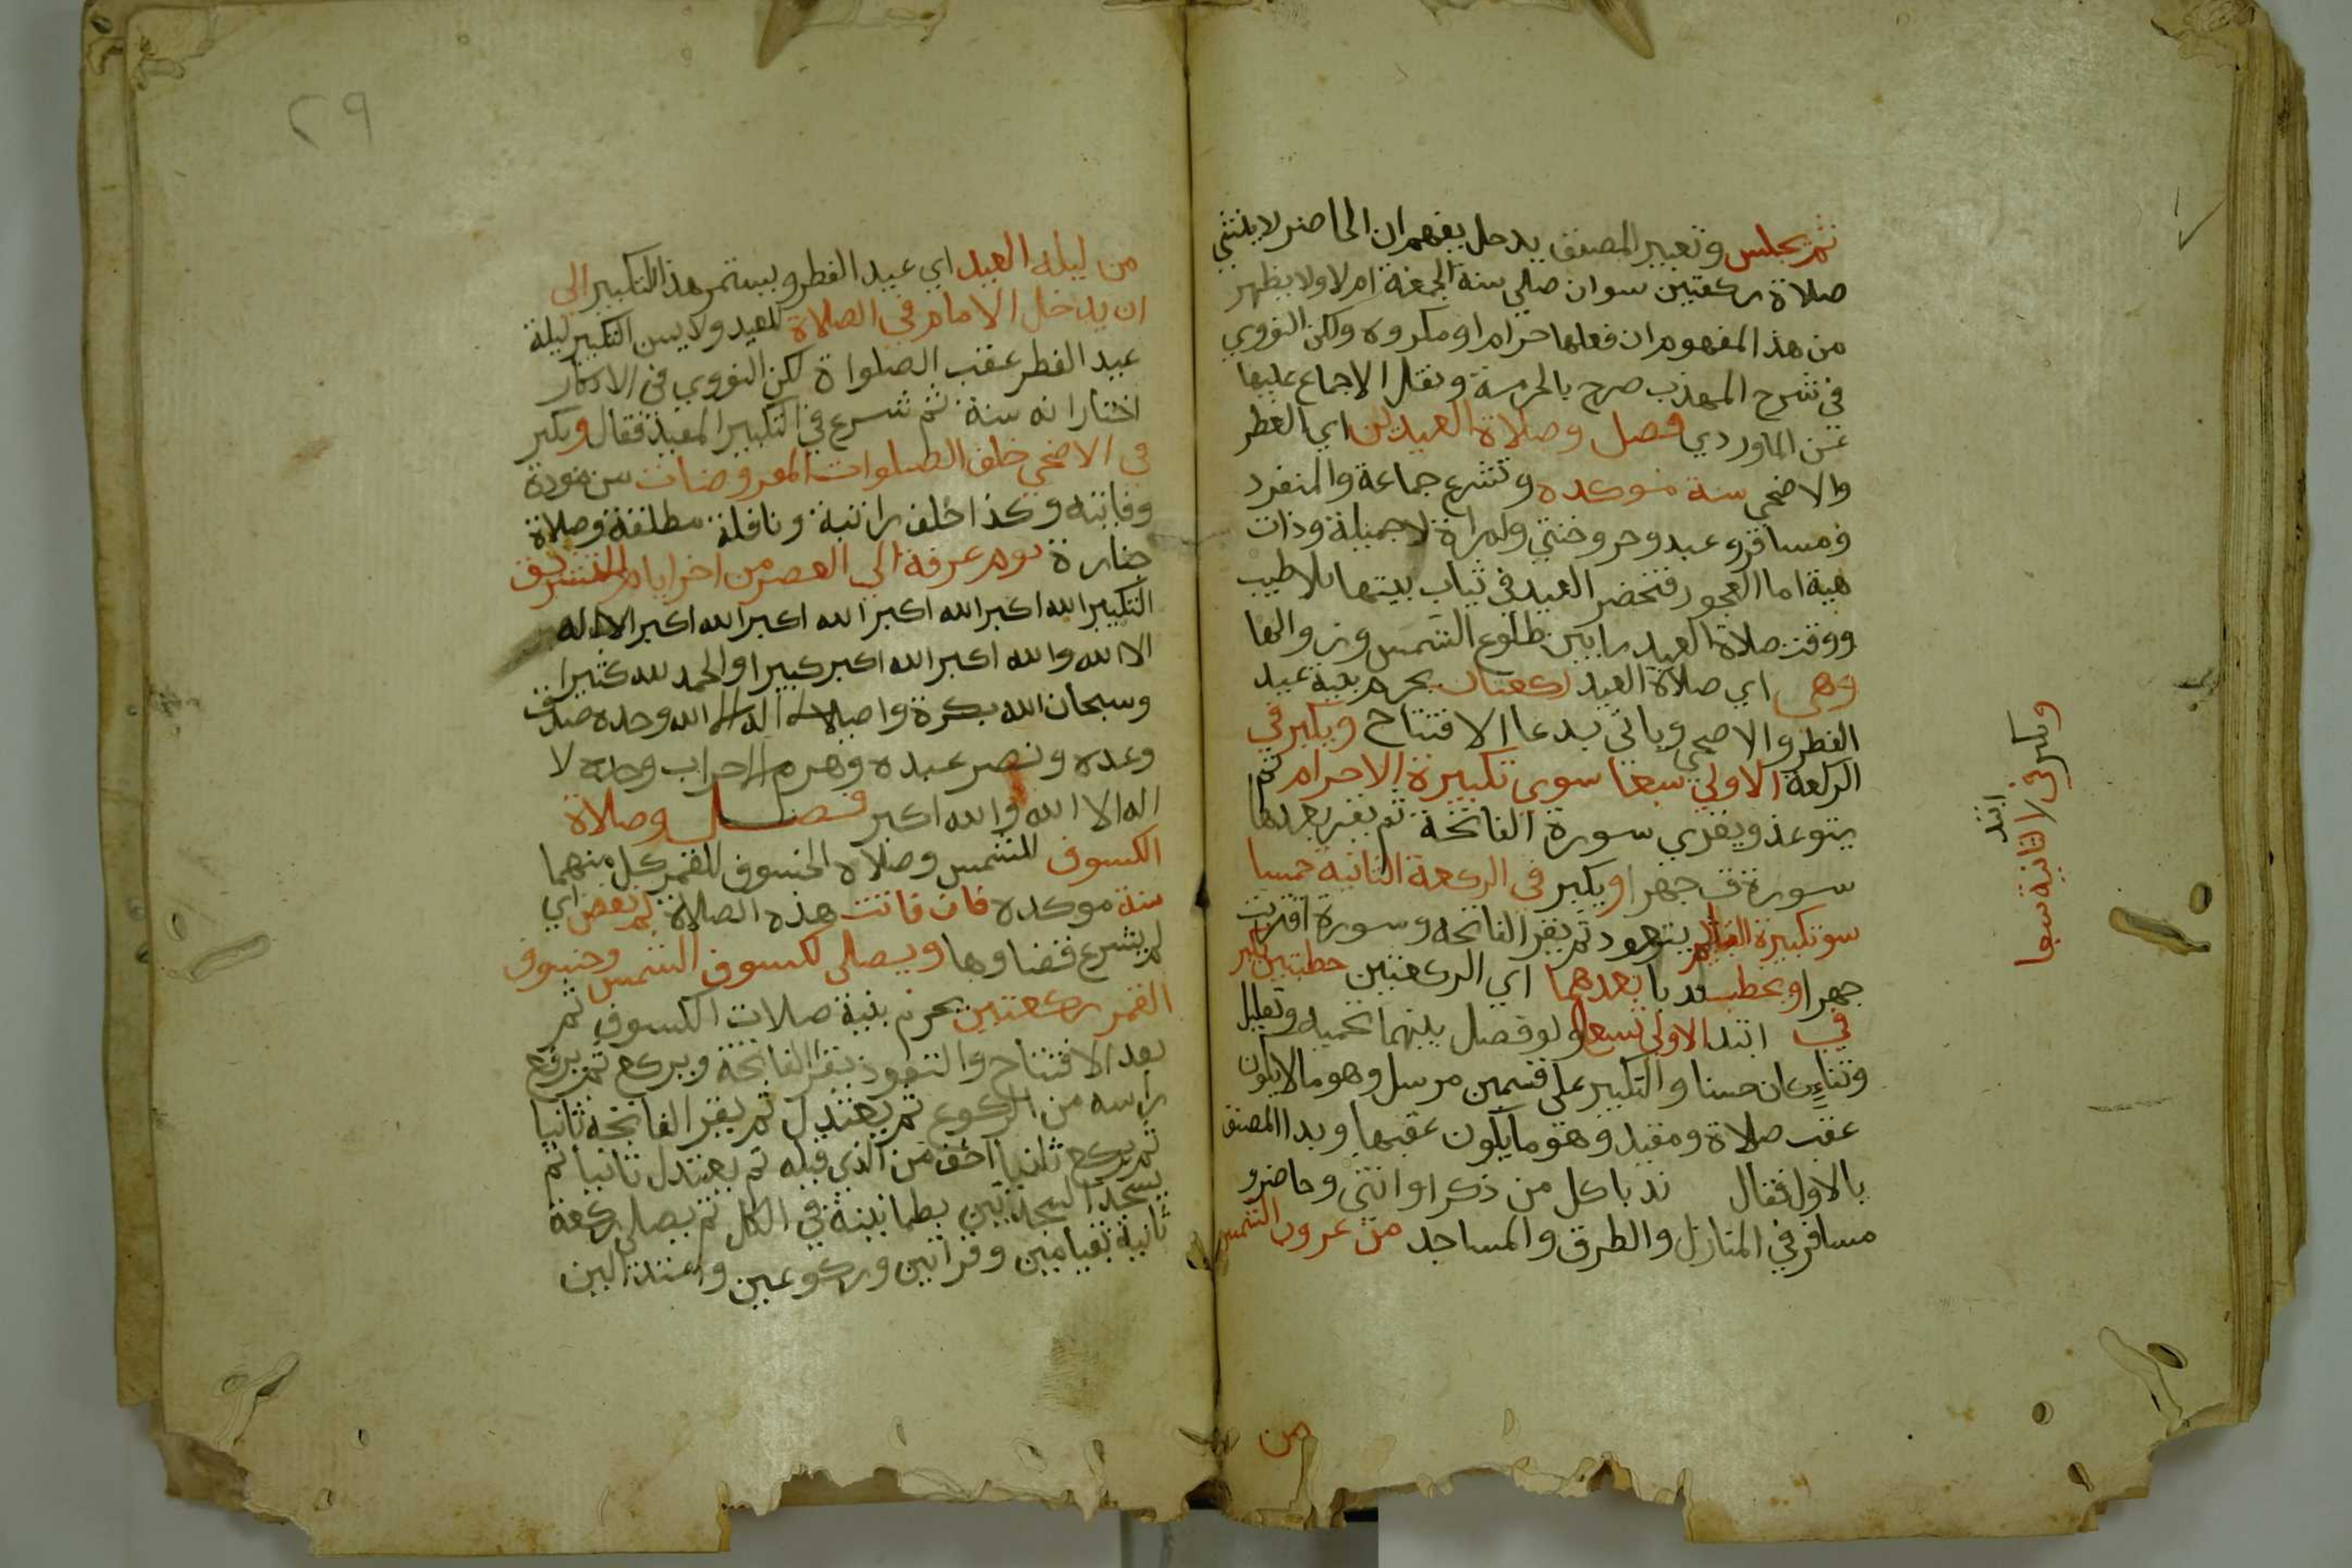 ثم يجلس وتعبير المصنف بدخل يفهم ان الحاضر لا ينشي
صلاة ركعتين سوا ن صلي سنة الجمعة ام لا ولا يظهر
من هذا المفهوم ان فعلها حرام او مكروه ولكن النووي
في شرح المهذب صرح بالحرمة ونقل الاجماع عليها
عن الماوردي فصل وصلاة العيدين اي الفطر
والاضحي سنة موكده وتشرع جماعة والمنفرد
ومسافر وعبد وحر وخنثي ولمراة لا جميلة وذات
هية اما العجوز فتحضر العيد في ثياب بيتها بلا طيب
ووقت صلاة العيد ما بين طلوع الشمس وزوالها
وهي اي صلاة العيد ركعتان يحرم بنية عيد
الفطر والاضحي وياتي بدعا الافتتاح ويكبر في
الركعة الاولي سبعا سوي تكبيرة الاحرام ثم
يتوعذ ويقري سورة الفاتحة ثم يقر بعدها
سورة ق جهرا ويكبر في الركعة الثانيه خمسا
سو تكبيرة القيام ثم يتعود ثم يقر الفاتحه وسورة اقتربت
جهرا ويخطب ندبا بعدهما اي الركعتين خطبتين يكبر
في ابتدا الاولي تسعا ولو فصل بينهما بتحميد وتهليل
وثناء كان حسنا والتكبير علي قسمين مرسل وهو ما لا يكون
عقب صلاة ومقيد وهو ما يكون عقبها وبدا المصنف
بالاول فقال ندبا كل من ذكر او انثي وحاضر و
مسافر في المنازل والطرق والمساجد من غروب الشمس
من
ويكبر في ابتدا الثانية سبعا
٢٩
من ليلة العيد اي عيد الفطر ويستمر هذا التكبير الي
ان يدخل الامام في الصلاة للعيد ولا يسن التكبير ليلة
عيد الفطر عقب الصلواة لكن النووي في الاذكار
اختار انه سنة ثم شرع في التكبير المقيد فقال ويكبر
في الاضحي خلف الصلوات المفروضات من مودة
وفايته وكذا خلف راتبة ونافلة مطلقة وصلاة
جنازة يوم عرفة الي العصر من اخر ايام التشريق
التكبير الله اكبر الله اكبر الله اكبر الله اكبر لا اله
الا الله والله اكبر الله اكبر كبيرا والحمد لله كثيرا
وسبحان الله بكرة واصيلا لا اله الا الله وحده صدق
وعده ونصر عبده وهزم الاحزاب وحده لا
اله الا الله والله اكبر فصل وصلاة
الكسوف للشمس وصلاة الخسوف للقمر كل منهما
سنة موكده فان فاتت هذه الصلاة لم تقض اي
لم يشرع قضاوها ويصلي لكسوف الشمس وخسوف
القمر ركعتين يحرم بنية صلات الكسوف ثم
بعد الافتتاح والتعوذ يقر الفاتحة ويركع ثم يرفع
راسه من الركوع ثم يعتدل ثم يقر الفاتحة ثانيا
ثم يركع ثانيا اخف من الذي قبله ثم يعتدل ثانيا ثم
يسجد السجدتين بطمانينة في الكل ثم يصلي ركعة
ثانية بقيامين وقراتين وركوعين واعتدالين